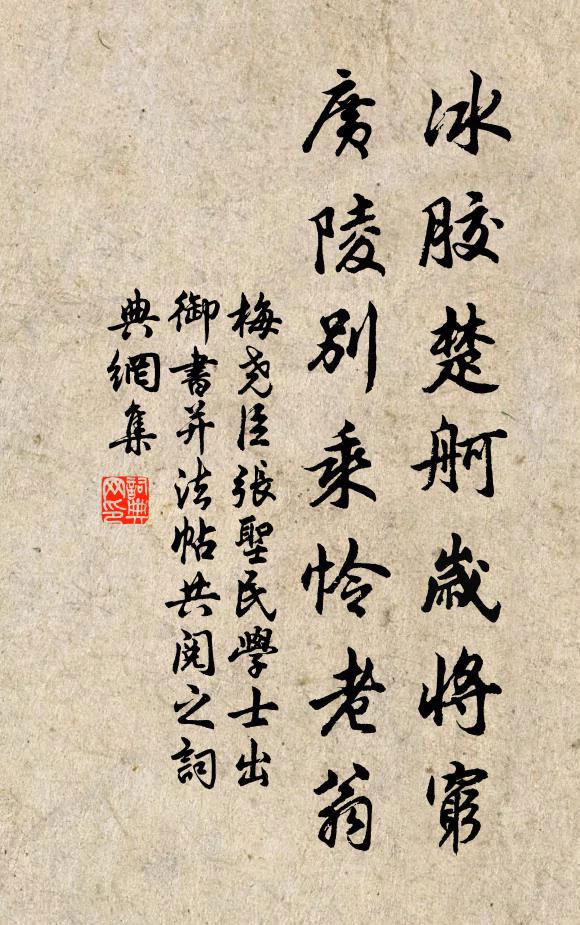 冰膠楚舸歲將窮
廣陵別乘怜老翁
梅堯臣張聖民學士出
御書并法帖共閱之詞
典網集
詞典網印